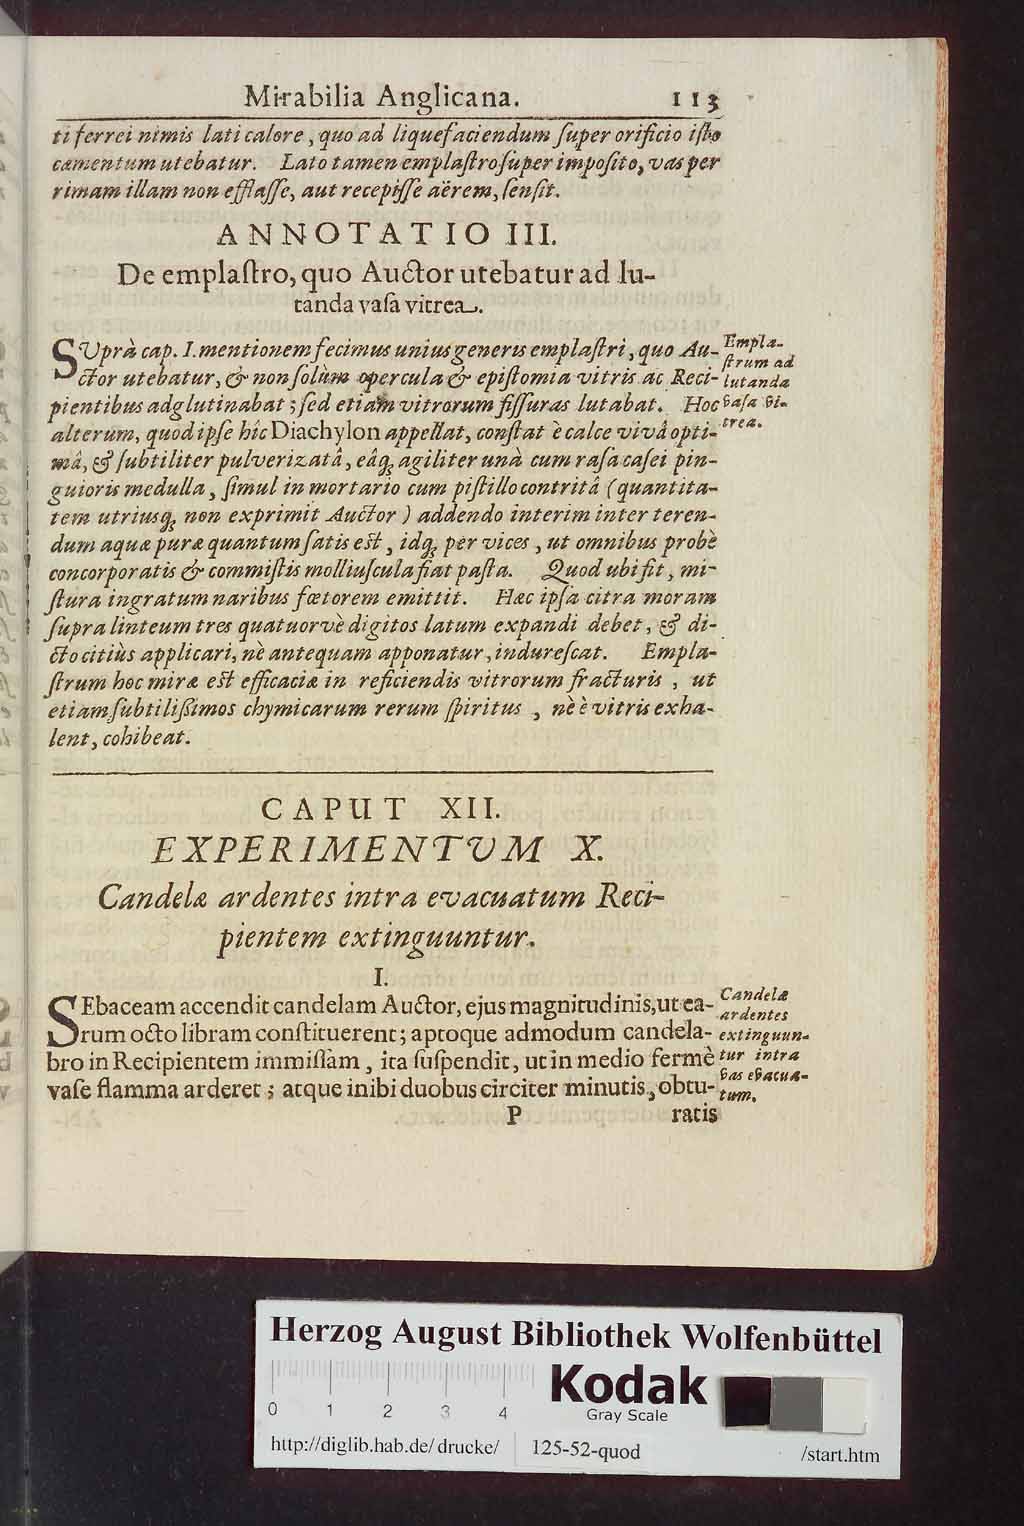 Mirabilia Anglicana. 113
ti ferrei nimis lati calore, quo ad liquefaciendum ſuper orificio iſto
cæmentum utebatur. Lato tamen emplaſtro ſuper impoſito, vas per
rimam illam non efflaſſe, aut recepiſſe aërem, ſenſit.
ANNOTATIO III.
De emplaſtro, quo Auctor utebatur ad lu-
tanda vaſa vitrea.
SUprà cap. I. mentionem fecimus unius generis emplaſtri, quo Au-
ctor utebatur, & non ſolùm opercula & epiſtomia vitris ac Reci-
pientibus adglutinabat; ſed etiam vitrorum fiſſuras lutabat. Hoc
alterum, quod ipſe hîc Diachylon appellat, conſtat è calce vivâ opti-
mâ, & ſubtiliter pulverizatâ, eâq; agiliter unà cum raſa caſei pin-
guioris medulla, ſimul in mortario cum piſtillo contritâ (quantita-
tem utriusq; non exprimit Auctor) addendo interim inter teren-
dum aquæ puræ quantum ſatis eſt, idq; per vices, ut omnibus probè
concorporatis & commiſtis molliuſcula fiat paſta. Quod ubi fit, mi-
ſtura ingratum naribus fœtorem emittit. Hæc ipſa citra moram
ſupra linteum tres quatuorvè digitos latum expandi debet, & di-
cto citiùs applicari, nè antequam apponatur, indureſcat. Empla-
ſtrum hoc miræ eſt efficaciæ in reficiendis vitrorum fracturis, ut
etiam ſubtiliſſimos chymicarum rerum ſpiritus, nè è vitris exha-
lent, cohibeat.
Empla-
ſtrum ad
lutanda
vaſa vi-
trea.
CAPUT XII.
EXPERIMENTUM X.
Candelæ ardentes intra evacuatum Reci-
pientem extinguuntur.
I.
SEbaceam accendit candelam Auctor, ejus magnitudinis, ut ea-
rum octo libram conſtituerent; aptoque admodum candela-
bro in Recipientem immiſſam, ita ſuſpendit, ut in medio fermè
vaſe flamma arderet; atque inibi duobus circiter minutis, obtu-
Candelæ
ardentes
extinguun-
tur intra
vas evacua-
tum.
P ratis
Herzog August Bibliothek Wolfenbüttel
Kodak
0 1 2 3 4 Gray Scale
http://diglib.hab.de/drucke/ 125-52-quod /start.htm